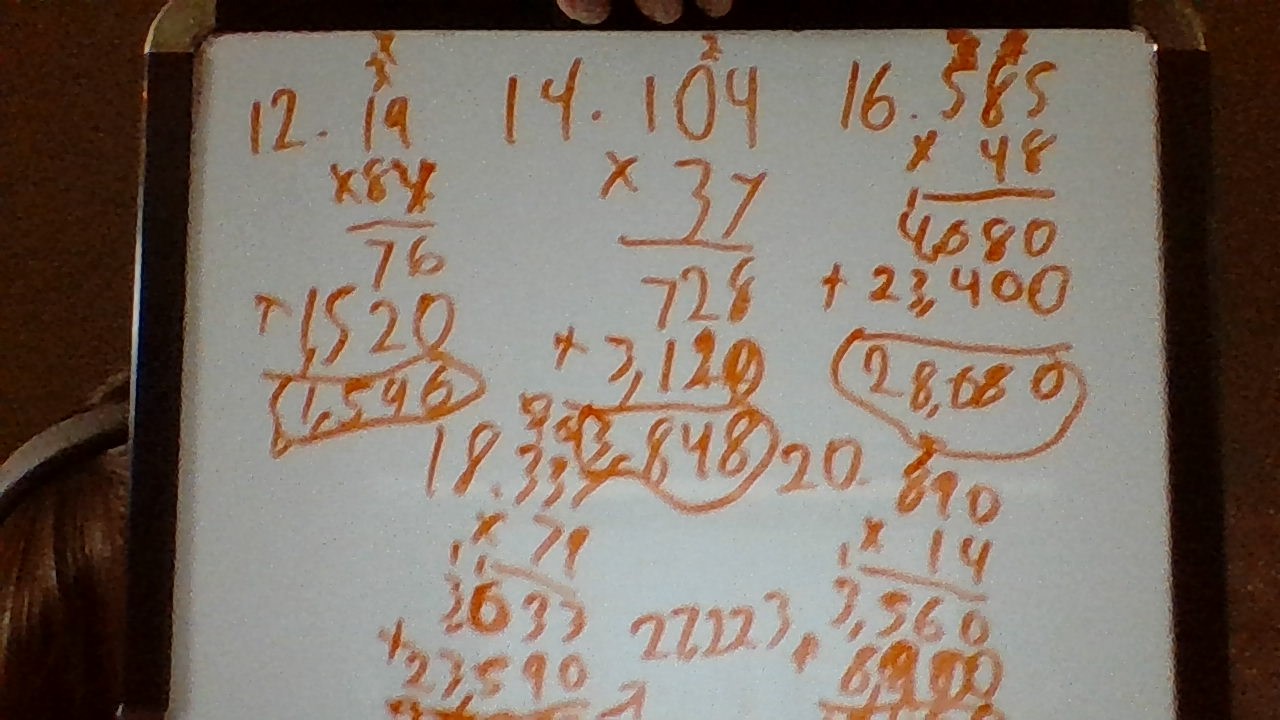 12. 19
x84
76
+1,520
1,596
14. 104
x 37
728
+ 3,120
3,848
16. 585
x 48
4,680
+ 23,400
28,080
18. 337
x 79
3033
+ 23,590
20. 890
x 14
3,560